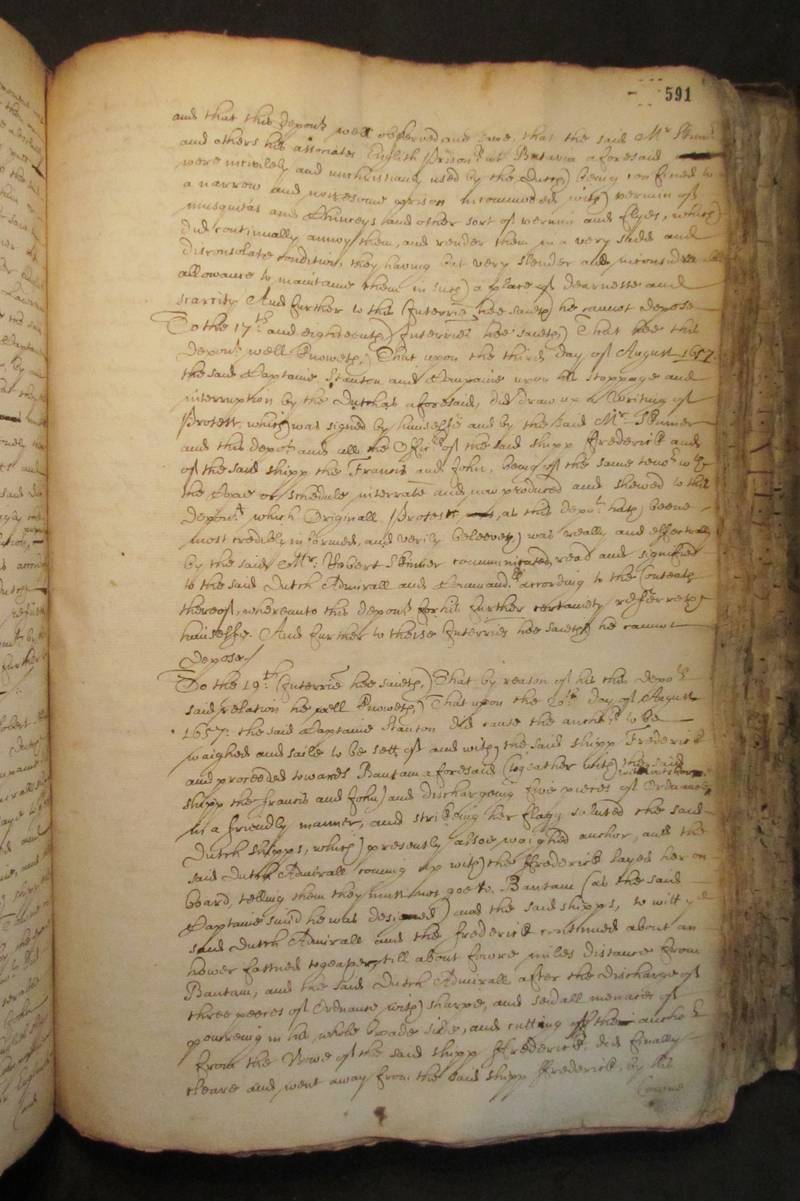 591
and that this depon:t well observed and sawe, that the said Mr Skinner
and others his assotiates English prison:rs at Batavia aforesaid
were incivilely and unchristianly used by the Dutch, being confined to
a narrow and noysesome prison incommoded with vermin of
musquitas and Chinceys and other sort of vermin and flyes, which
did continually annoy them, and render them in a very sadd and
disconsolate condition, they having but very slender and inconsiderable
allowance to maintaine them in such a place of dearnesse and
scarcity And further to this Interrie hee saveth he cannot depose
To the 17th and eighteenth Interries hee saveth, That hee this
depon:t well knoweth, That upon the third day of August 1657
the said Captaine Stanton and Companie upon his stoppage and
interruption by the Dutch as aforesaid, did draw up a Writing of
Protest, which was signed by himselfe and by the said Mr Skinner
and this depo:t and all the Offic:rs of the said shipp Frederick and
of the said shipp the Francis and John, being of the same teno:r w:th
the Copie or schedule interrate and now produced and shewed to this
depon:t which Originall Protest, as this depo:t hath beene
most credibly informed, and verily beleeveth was really and effectually
by the said Mr: Robert Skinner communicated, read and signified
to the said Dutch Admirall and Command:rs according to the Contents
thereof, whereunto this depon:t for his further certainety referreth
himselfe. And further to theise Interries hee saveth he cannot
depose/
To the 19:th Interrie hee saveth, That by reason of his this depo:ts
said relation he well knoweth, That upon the day of August
1657: the said Captaine Stanton did cause the anch:rs to be
waighed and saile to be sett of and with the said shipp Frederick
and proceeded towards Bantam aforesaid (together with the said
shipp the Francis and John) and dischargeing five pieces of Ordnance
in a friendly manner, and strikeing her flagg saluted the said
Dutch shipps, which presently alsoe waighed anchor, and the
said Dutch Admirall coming up with the Frederick layed her on
board, telling them they must not goe to Bantam (as the said
Captaine said he was designed) and the said shipps, to witt ye
said Dutch Admirall and the Frederick continued about an
hower fastned togeather, till about foure miles distance from
Bantam, and the said Dutch Admirall after the discharge of
three peeces of Ordnance with sharpe, and sevall menaces of
poureing in his whole broade side, and cutting off the anch:r
from the Bowe of the said shipp Frederick did finally
cleare and went away from the said shipp Frederick, by his